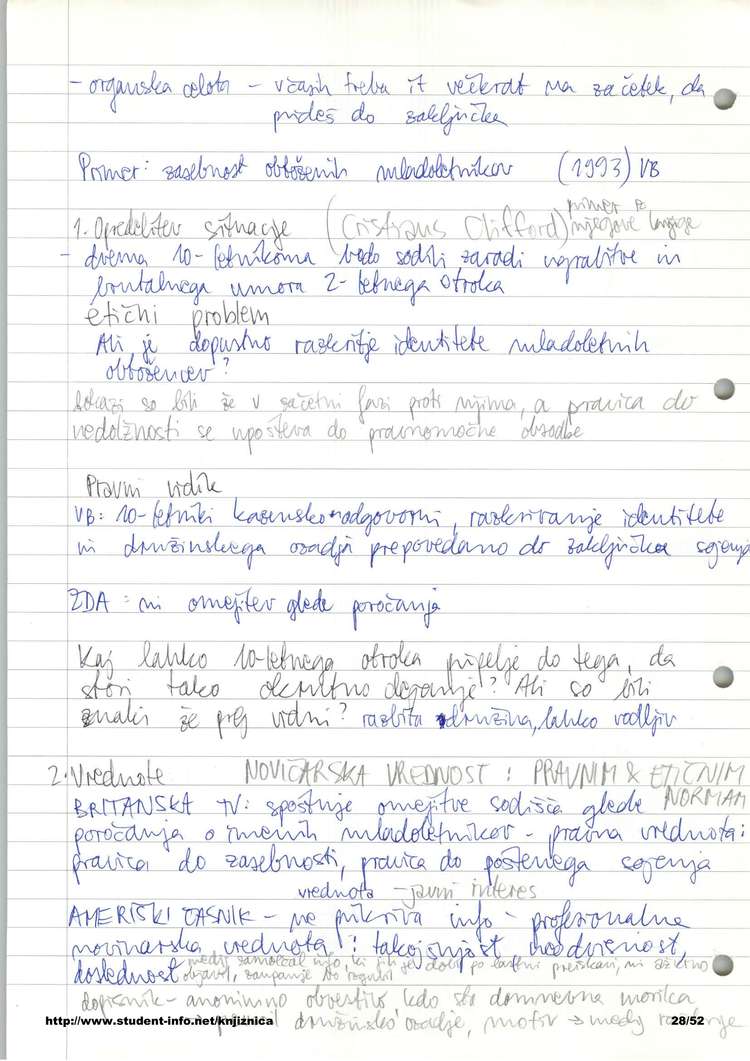 - organska celota - včasih treba it večkrat na začetek, da
prideš do zaključka
Primer: zasebnost obtoženih mladoletnikov (1993) VB
primer iz
1. Opredelitev situacije (Cristians Clifford) njegove knjige
- dvema 10-letnikoma bodo sodili zaradi ugrabitve in
brutalnega umora 2-letnega otroka
etični problem
Ali je dopustno razkritje identitete mladoletnih
obtožencev?
Dokazi so bili že v začetni fazi proti njima, a pravica do
nedolžnosti se upošteva do pravnomočne obsodbe
Pravni vidik
VB: 10-letniki kazensko odgovorni, razkrivanje identitete
in družinskega ozadja prepovedano do zaključka sojenja
ZDA = ni omejitev glede poročanja
Kaj lahko 10-letnega otroka pripelje do tega, da
stori tako okrutno dejanje? Ali so bili
znaki že prej vidni? razbita družina, lahko vodljiv
2. Vrednote NOVIČARSKA VREDNOST : PRAVNIM & ETIČNIM
NORMAM
BRITANSKA TV: spoštuje omejitve sodišča glede
poročanja o imenih mladoletnikov - pravna vrednota:
pravica do zasebnosti, pravica do poštenega sojenja
vrednota - javni interes
AMERIŠKI ČASNIK - ne prikriva info - profesionalna
novinarska vrednota: takojšnjost, neodvisnost,
doslednost medij zamolčal info, ki jih je dobil po lastni preiskavi, ni
objavil, zaupanje
dopisnik - anonimno obvestilo kdo sta domnevna morilca
družinsko ozadje, motiv → medij
http://www.student-info.net/knjiznica 28/52